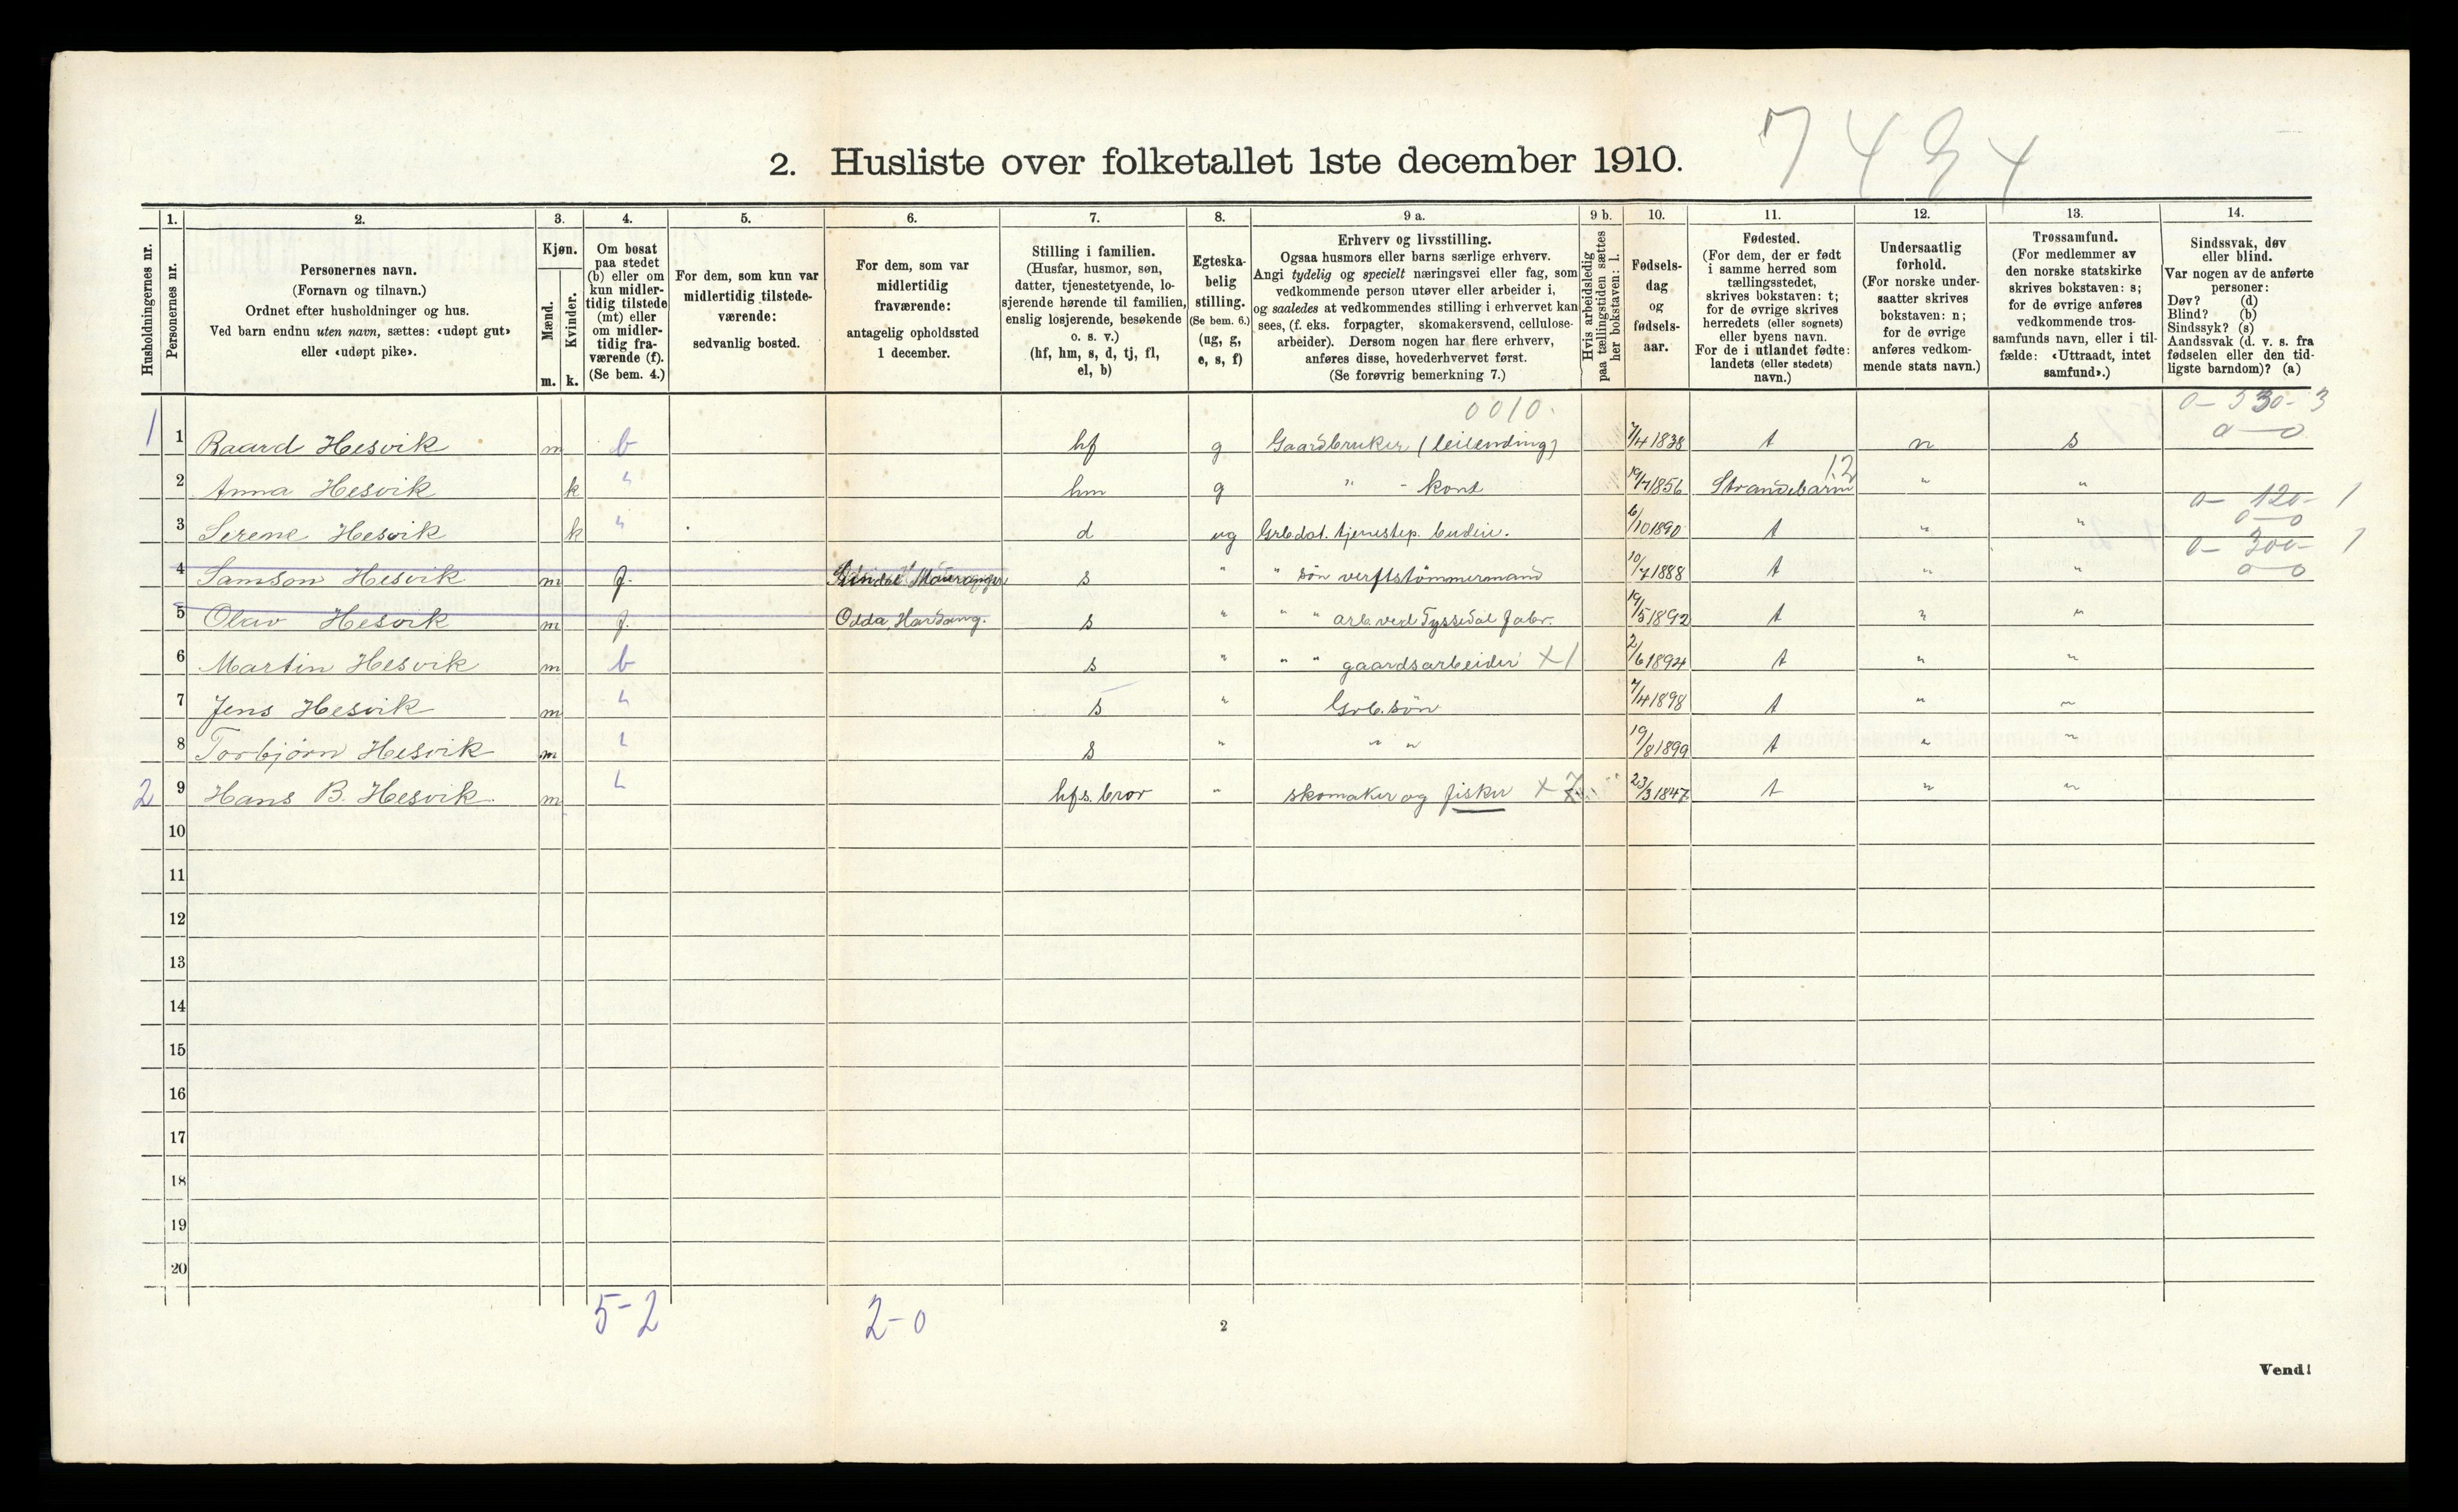 7484
2. Husliste over folketallet 1ste december 1910.
Husholdningernes nr.
1. Personernes nr.
2. Personernes navn.
(Fornavn og tilnavn.)
Ordnet efter husholdninger og hus.
Ved barn endnu uten navn, sættes: «udøpt gut»
eller «udøpt pike».
3. Kjøn.
Mænd. m.
Kvinder. k.
4. Om bosat
paa stedet
(b) eller om
kun midler-
tidig tilstede
(mt) eller
om midler-
tidig fra-
værende (f).
(Se bem. 4.)
5. For dem, som kun var
midlertidig tilstede-
værende:
sedvanlig bosted.
6. For dem, som var
midlertidig
fraværende:
antagelig opholdssted
1 december.
7. Stilling i familien.
(Husfar, husmor, søn,
datter, tjenestetyende, lo-
sjerende hørende til familien,
enslig losjerende, besøkende
o. s. v.)
(hf, hm, s, d, tj, fl,
el, b)
8. Egteska-
belig
stilling.
(Se bem. 6.)
(ug, g,
e, s, f)
9 a. Erhverv og livsstilling.
Ogsaa husmors eller barns særlige erhverv.
Angi tydelig og specielt næringsvei eller fag, som
vedkommende person utøver eller arbeider i,
og saaledes at vedkommendes stilling i erhvervet kan
sees, (f. eks. forpagter, skomakersvend, cellulose-
arbeider). Dersom nogen har flere erhverv,
anføres disse, hovederhvervet først.
(Se forøvrig bemerkning 7.)
9 b. Hvis arbeidsledig
paa tællingstiden sættes
her bokstaven: l.
10. Fødsels-
dag
og
fødsels-
aar.
11. Fødested.
(For dem, der er født
i samme herred som
tællingsstedet,
skrives bokstaven: t;
for de øvrige skrives
herredets (eller sognets)
eller byens navn.
For de i utlandet fødte:
landets (eller stedets)
navn.)
12. Undersaatlig
forhold.
(For norske under-
saatter skrives
bokstaven: n;
for de øvrige
anføres vedkom-
mende stats navn.)
13. Trossamfund.
(For medlemmer av
den norske statskirke
skrives bokstaven: s;
for de øvrige anføres
vedkommende tros-
samfunds navn, eller i til-
fælde: «Uttraadt, intet
samfund».)
14. Sindssvak, døv
eller blind.
Var nogen av de anførte
personer:
Døv? (d)
Blind? (b)
Sindssyk? (s)
Aandssvak (d. v. s. fra
fødselen eller den tid-
ligste barndom)? (a)
0010.
0-530-3
0-0
1 1 Baard Hesvik m b hf g Gaardbruker (leilending) 7/4 1838 t n s
12
2 Anna Hesvik k " hm g " - kone 19/7 1856 Strandebarm " "
0-120-1
0-0
3 Serene Hesvik k " d ug Grbdat. tjenestep. budeie. 6/10 1890 t " "
0-300-1
0-0
4 Samson Hesvik m f. s " " søn verftstömmermand 10/7 1888 t " "
5 Olav Hesvik m f. Odda, Hardang. s " " " arb. ved Tyssedal fabr. 19/5 1892 t " "
6 Martin Hesvik m b s " " " gaardsarbeider X1 2/6 1894 t " "
7 Jens Hesvik m " s " Grb. søn 7/4 1898 t " "
8 Torbjörn Hesvik m " s " " " 19/8 1899 t " "
2 9 Hans B. Hesvik. m " hfs. bror " skomaker og fisker X 23/3 1847 t " "
10
11
12
13
14
15
16
17
18
19
20
5-2 2-0
2
Vend!